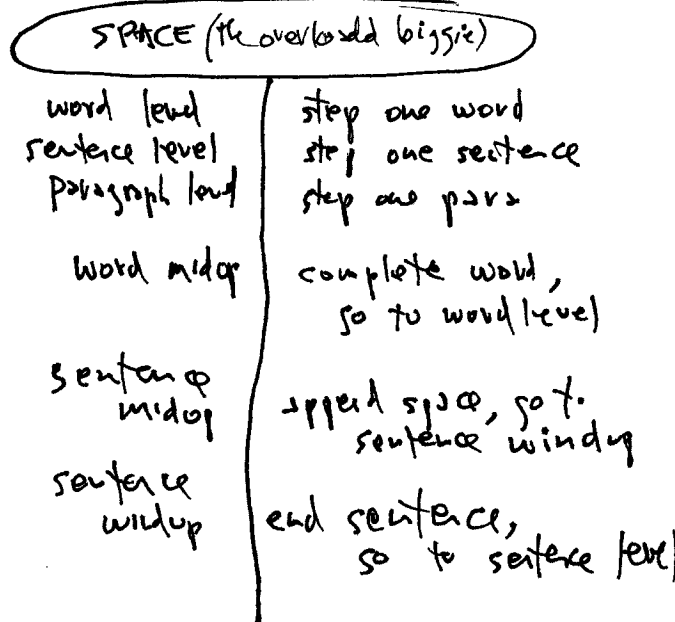 SPACE (the overloadd biggie)
word level step one word
sentence level step one sentence
paragraph level step one para
word midop complete word,
go to word level
sentence
midop append space, go to
sentence windup
sentence
windup end sentence,
go to sentence level